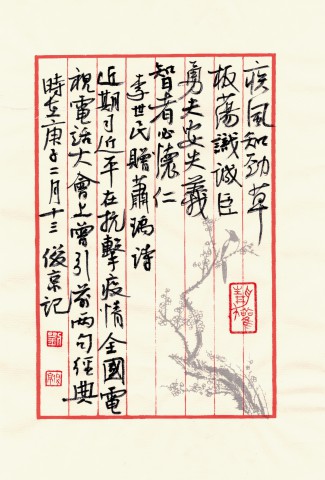 疾风知劲草
板蕩識诚臣
勇夫安失義
智者必懷仁
李世民贈蕭瑀诗
近期习近平在抗擊疫情全國電
視電話大會上曾引前两句經典
時在庚子二月十三 俊京记